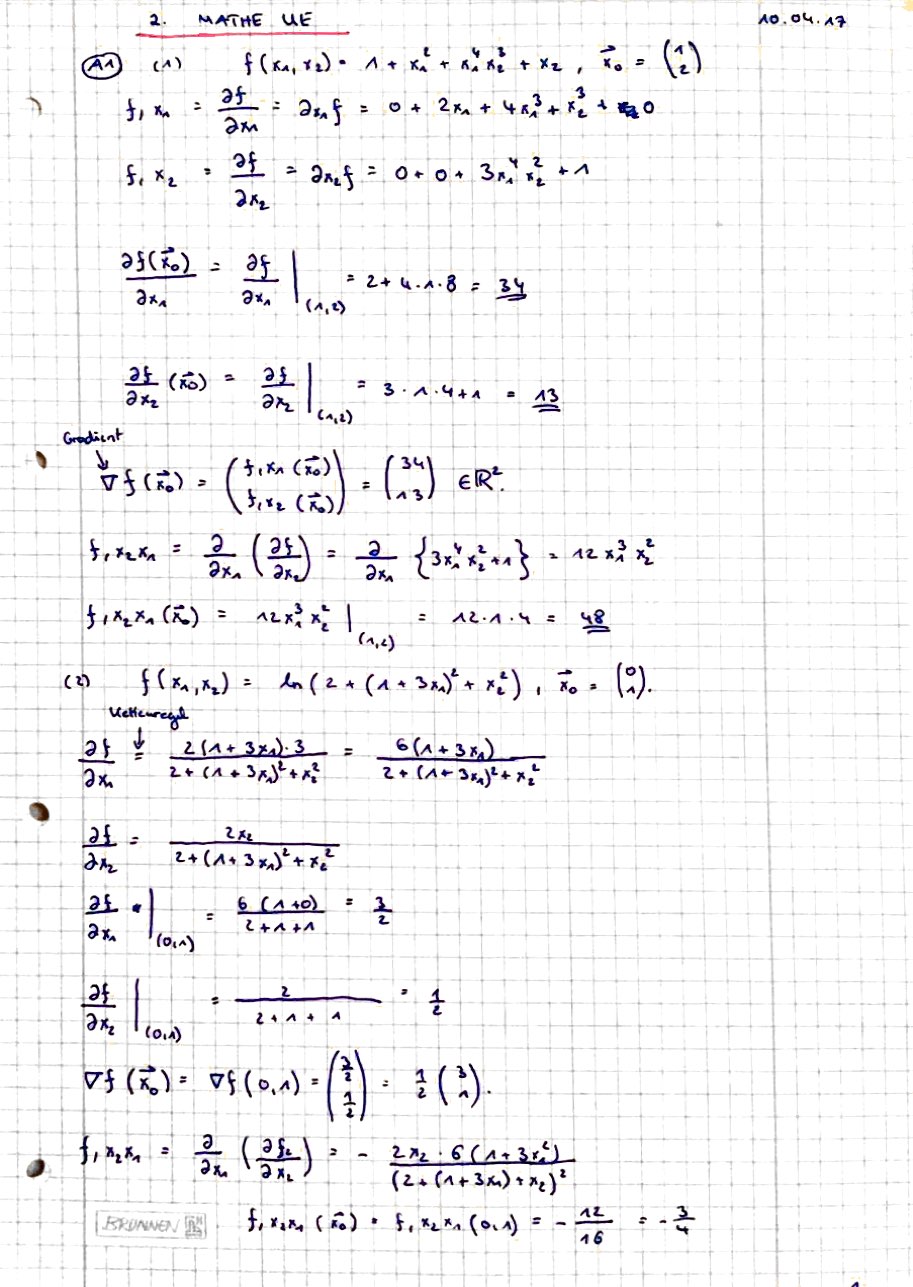 2. MATHE UE 10.04.17
A1 (1) f(x₁,x₂) = 1 + x₁² + x₁⁴x₂³ + x₂ , x⃗₀ = (1 2)
f,x₁ = ∂f/∂x₁ = ∂x₁f = 0 + 2x₁ + 4x₁³ + x₂³ + 0
f,x₂ = ∂f/∂x₂ = ∂x₂f = 0 + 0 + 3x₁⁴x₂² + 1
∂f(x⃗₀)/∂x₁ = ∂f/∂x₁ |(1,2) = 2 + 4·1·8 = 34
∂f/∂x₂ (x⃗₀) = ∂f/∂x₂ |(1,2) = 3·1·4+1 = 13
Gradient
↓
∇f(x⃗₀) = (f,x₁(x⃗₀) f,x₂(x⃗₀)) = (34 13) ∈ℝ².
f,x₂x₁ = ∂/∂x₁ (∂f/∂x₂) = ∂/∂x₁ {3x₁⁴x₂²+1} = 12x₁³x₂²
f,x₂x₁(x⃗₀) = 12x₁³x₂² |(1,2) = 12·1·4 = 48
(2) f(x₁,x₂) = ln(2 + (1 + 3x₁)² + x₂²) , x⃗₀ = (0 1).
Kettenregel
↓
∂f/∂x₁ = 2(1+3x₁)·3 / 2+(1+3x₁)²+x₂² = 6(1+3x₁) / 2+(1+3x₁)²+x₂²
∂f/∂x₂ = 2x₂ / 2+(1+3x₁)²+x₂²
∂f/∂x₁ |(0,1) = 6(1+0) / 2+1+1 = 3/2
∂f/∂x₂ |(0,1) = 2 / 2+1+1 = 1/2
∇f(x⃗₀) = ∇f(0,1) = (3/2 1/2) = 1/2 (3 1).
f,x₂x₁ = ∂/∂x₁ (∂f₂/∂x₂) = - 2x₂·6(1+3x₁²) / (2+(1+3x₁)+x₂)²
BRUNNEN f,x₂x₁(x⃗₀) = f,x₂x₁(0,1) = - 12/16 = - 3/4